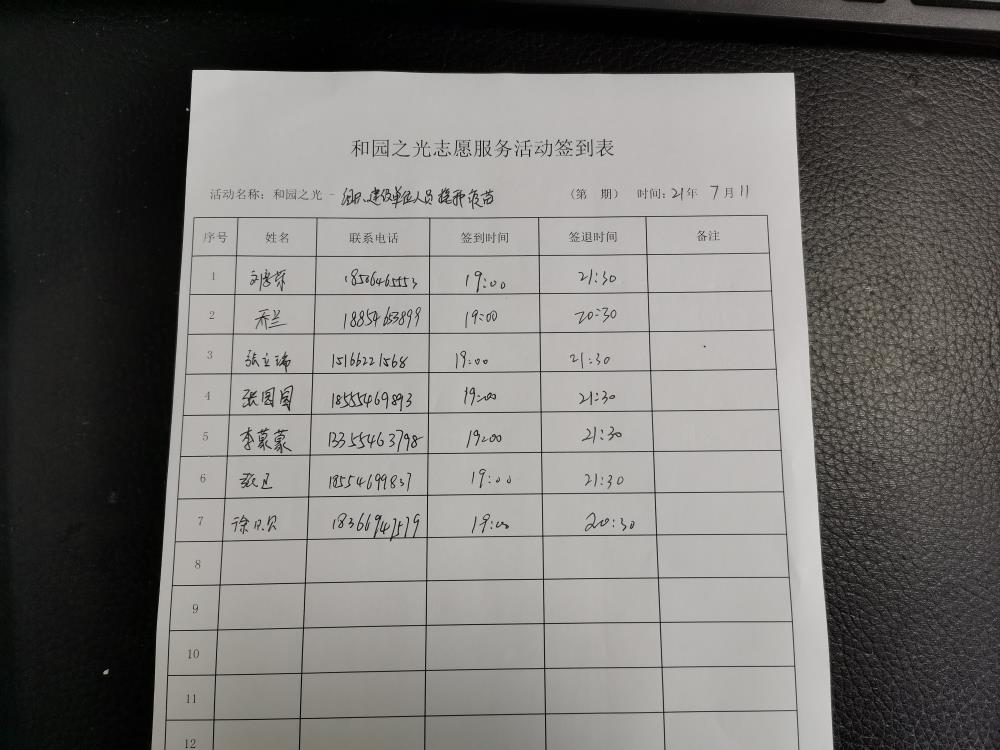 和园之光志愿服务活动签到表
活动名称：和园之光 - 组织建设单位人员接种疫苗 （第 期） 时间：21年 7月11
序号 姓名 联系电话 签到时间 签退时间 备注
1 19:00 21:30
2 乔兰 18854653899 19:00 20:30
3 张立瑞 15166221568 19:00 21:30
4 张园园 18555469893 19:00 21:30
5 李蒙蒙 13355463798 19:00 21:30
6 18554699837 19:00 21:30
7 徐贝贝 18366947579 19:00 20:30
8
9
10
11
12